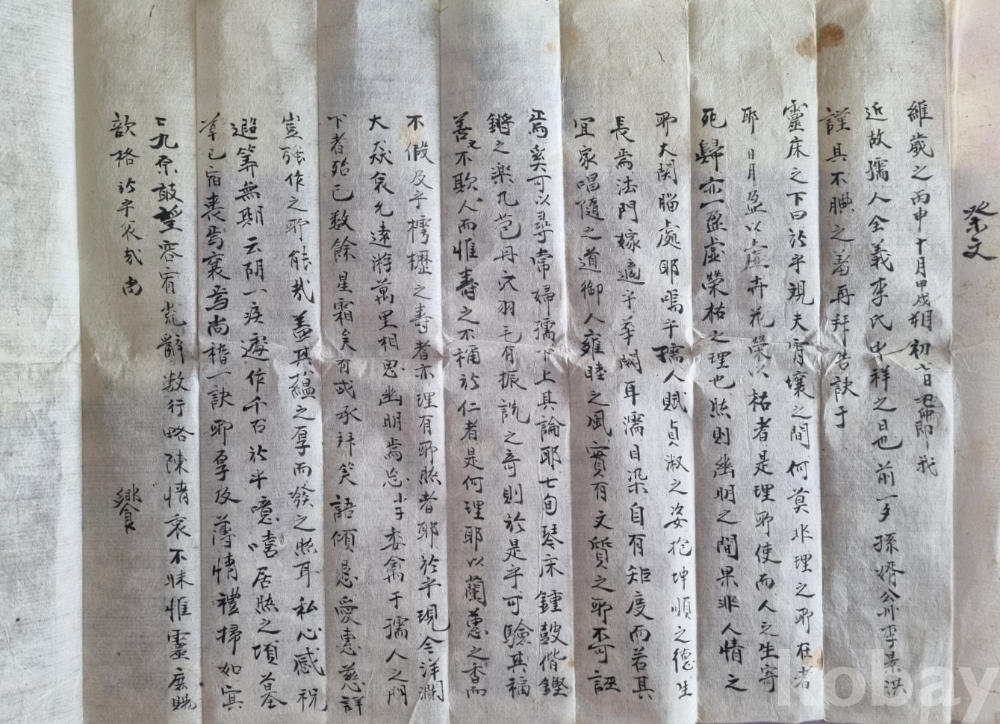 祭文
維歲之丙申十月甲戌朔初六日己卯卽我
近故孺人全義李氏中祥之日也前一夕孫婿公州李景洪
謹具不腆之羞再拜告訣于
靈床之下曰於乎覩夫宵壤之間何莫非理之耶在者
耶日月盈以虛卉花榮以枯者是理耶使而人之生寄
死歸亦一盈虛榮枯之理也然則幽明之間果非人情之
耶大関腦處耶嗚乎孺人賦貞淑之姿抱坤順之德生
長焉法門嫁適乎華閥耳濡目染自有矩度而若其
宜家唱隨之道御人雍睦之風實有文質之耶不可誣
焉奚可以尋常婦孺下上其論耶七旬琴床鍾鼓偕鏗
鏘之樂九苞丹穴羽毛有振詵之奇則於是乎可驗其福
善之不欺人而惟壽之不稱於仁者是何理耶以蘭蕙之香而
不假及乎樗櫪之壽者亦理有耶然者耶於乎現今洋瀾
大焱衮允遠游萬里相思幽明焉忘小子委禽于孺人之門
下者殆已数餘星霜矣有或承拜笑語傾倒愛惠慈詳
豈强作之耶能哉盖其蘊之厚而發之然耳私心感祝
遐筭無期云胡一疾遽作千古於乎噫嘻居然之頃墓
草已宿喪焉襄焉尚稽一訣耶孚及薄情禮掃如冥
九京敢望容宥荒辭数行略陳情哀不昧惟靈庶貺
歆格於乎哀哉尚
饗
kobay